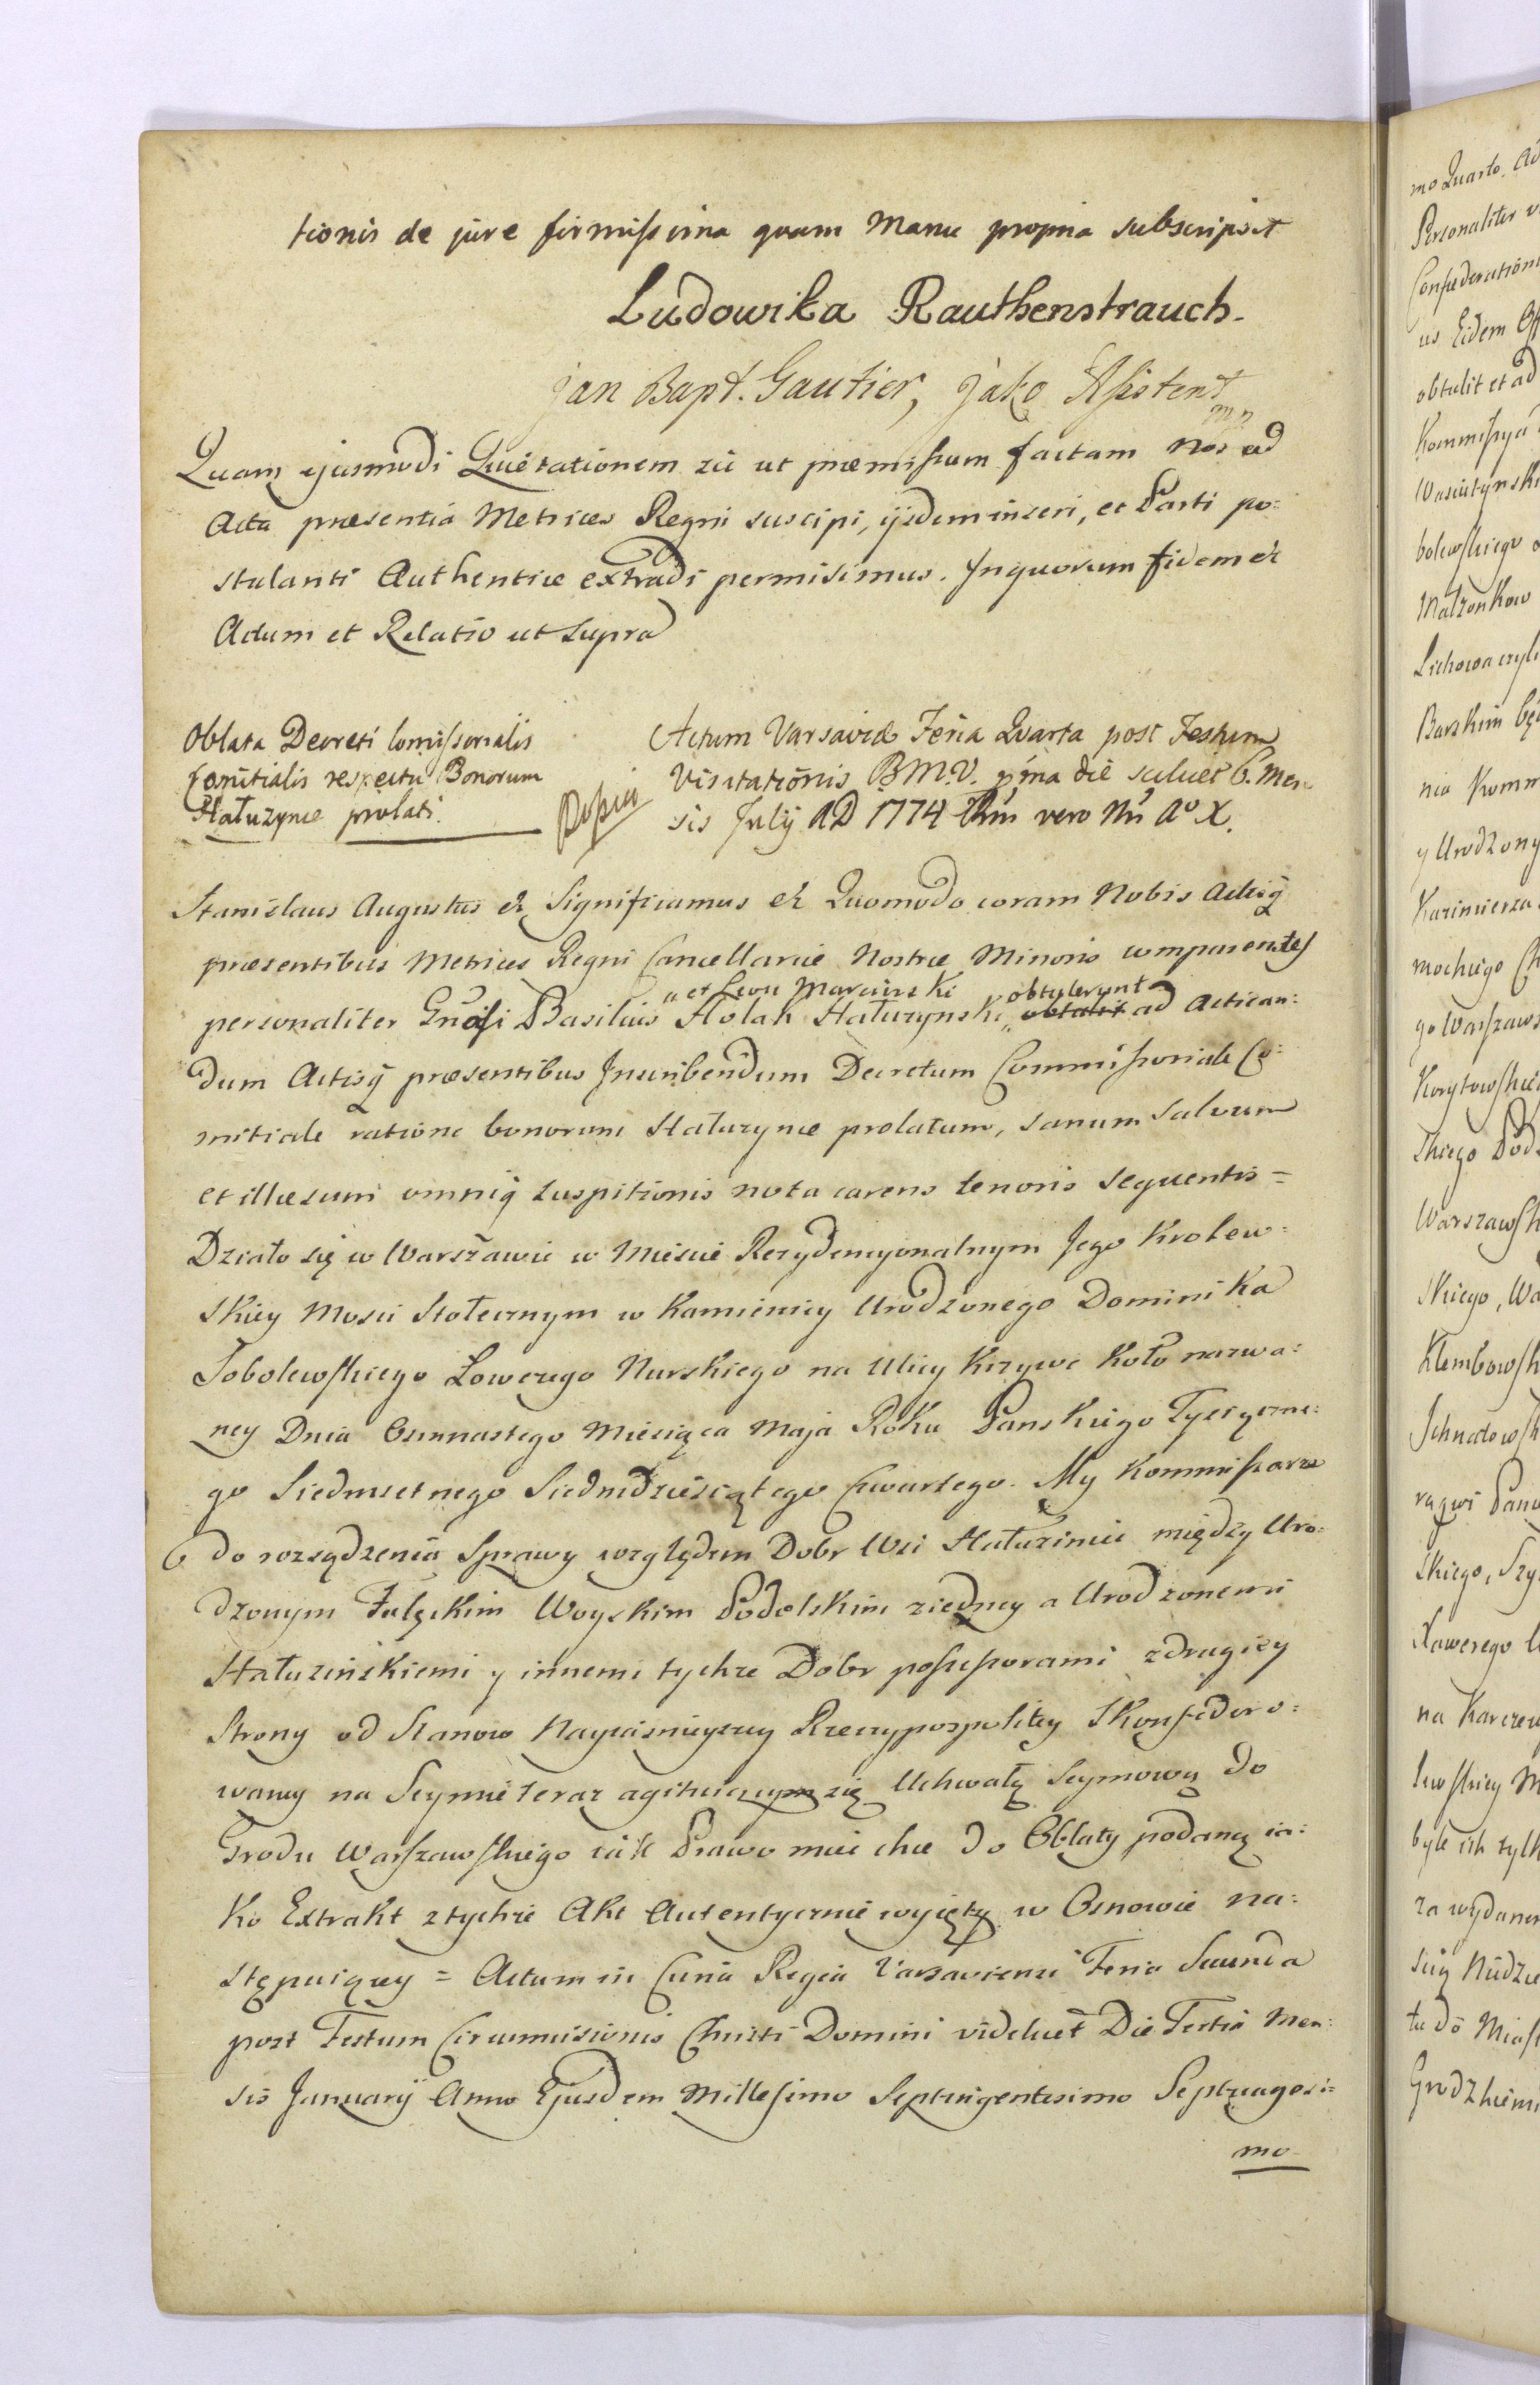 tionis de jure firmissima quam Manu propria subscripsit
Ludowika Rauthenstrauch.
Jan Bapt. Gautier, Jako Assistent
mp
Quam ejusmodi Quietationem sic ut præmissum factam Nos ad
Acta præsentia Metrices Regni suscipi, ijsdem inseri, et Parti po:
stulanti Authentice extradi permisimus. In quorum fidem et
Actum et Relatio ut supra
Oblata Decreti Comissorialis
Comitialis respectu Bonorum
Hałuzynce prolati.
Actum Varsaviæ Feria Quarta post Festum
Visitationis B.M.V. prima die scilicet 6. Men
sis July AD 1774 vero Nri Ao X.
Stanislaus Augustus et Significamus et Quomodo coram Nobis Actisq
præsentibus Metrices Regni Cancellariæ Nostræ Minoris comparentes
personaliter Gnosi Basilius Holak Hałuzynski obtulit adActican:
„et Leon Marcinski obtulerunt
dum Actisq præsentibus Inscribendum Decretum Commissoriale Co:
mitiale ratione bonorum Hałuzynce prolatum, sanum salvum
et illæsum omniq suspitionis nota carens tenoris sequentis =
Działo się w Warszawie w Miescie Rezydencyonalnym Jego Krolew:
skiey Mosci Stołecznym w Kamienicy Urodzonego Dominika
Sobolewskiego Łowczego Nurskiego na Ulicy Krzywe Koło nazwa:
ney Dnia Osmnastego Miesiąca Maja Roku Panskiego Tysiączne:
go Siedmsetnego Siedmdziesiątego Czwartego. My Kommissarze
do rozsądzenia Sprawy względem Dobr Wsi Hałuzince między Uro:
dzonym Fulęckim Woyskim Podolskim ziedney a Urodzonemi
Hałuzińskiemi y innemi tychze Dobr possessorami zdrugiey
Strony od Stanow Nayiasnieyszey Rzeczypospolitey Skonfedero:
waney na Seymie teraz agituiącym się Uchwałą Seymową do
Grodu Warszawskiego iak Prawo miec chce do Oblaty podaną ia:
ko Extrakt ztychze Akt Autentycznie wyięty w Osnowie na:
stępuiącey = Actum in Curia Regia Varsaviensi Feria Secunda
post Festum Circumcisionis Christi Domini videlicet Die Tertia Men:
sis January Anno Ejusdem Millesimo Septingentesimo Septuagesi=
mo
mo Quarto. Ad
Personaliter
us Eidem
obtulit et ad
Kommissyą
Małzonkow
Barskim
nia Komm
y Urodzony
Kazimierza
go Warszaws
Warszawsk
skiego, Wa
Klembowsk
skiego, Szy
Xawerego
byle ich tylk
za wydanem
tu do Miast